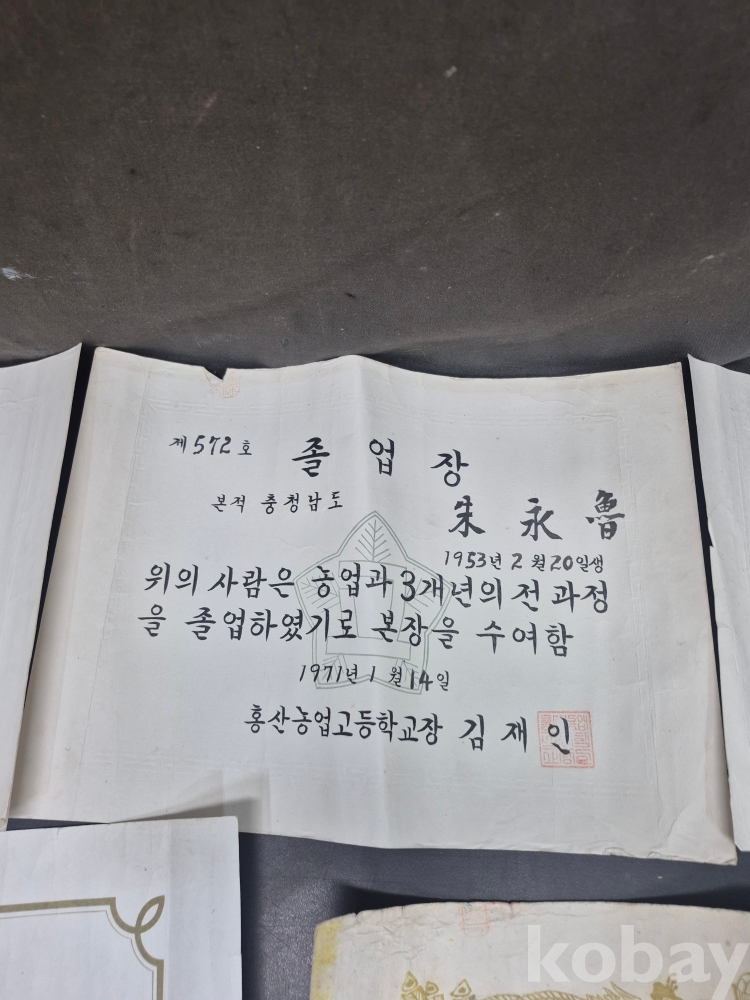 제572호 졸업장
본적 충청남도
朱永魯
1953년 2월 20일생
위의 사람은 농업과 3개년의 전 과정
을 졸업하였기로 본장을 수여함
1971년 1월 14일
홍산농업고등학교장 김재인
kobay